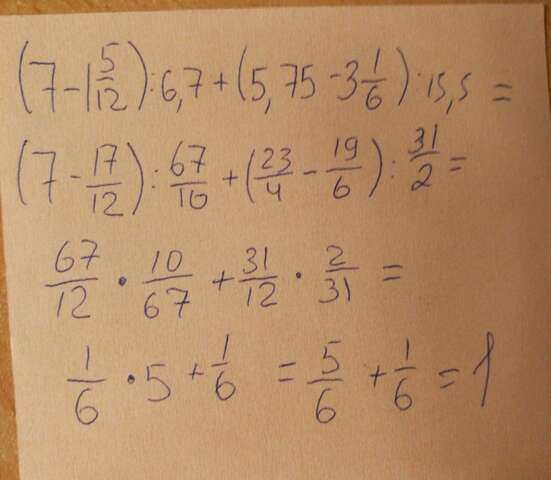 (7 - 1 5/12) : 6,7 + (5,75 - 3 1/6) : 15,5 =
(7 - 17/12) : 67/10 + (23/4 - 19/6) : 31/2 =
67/12 · 10/67 + 31/12 · 2/31 =
1/6 · 5 + 1/6 = 5/6 + 1/6 = 1